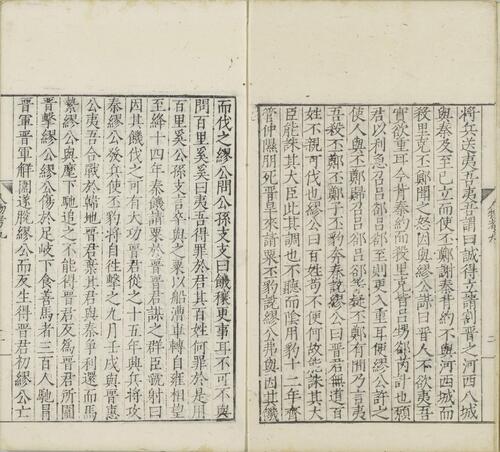 將兵送夷吾夷吾謂曰誠得立請割晉之河西八城
與秦及至已立而使丕鄭謝秦背約不與河西城而
殺里克丕鄭聞之恐因與繆公謀曰晉人不欲夷吾
實欲重耳今背秦約而殺里克皆呂甥郤芮計也願
君以利急召呂郤呂郤至則更入重耳便繆公許之
使人與丕鄭歸召呂郤呂郤等疑丕鄭有間乃言夷
吾殺丕鄭丕鄭子丕豹奔秦說繆公曰晉君無道百
姓不親可伐也繆公曰百姓苟不便何故能誅其大
臣能誅其大臣此其調也不聽而陰用豹十二年齊
管仲隰朋死晉旱來請粟丕豹說繆公弗與因其饑
而伐之繆公問公孫支支曰饑穰更事耳不可不與
問百里奚奚曰夷吾得罪於君其百姓何罪於是用
百里奚公孫支言卒與之粟以船漕車轉自雍相望
至絳十四年秦饑請粟於晉晉君謀之群臣虢射曰
因其饑伐之可有大功晉君從之十五年興兵將攻
秦繆公發兵使丕豹將自往擊之九月壬戌與晉惠
公夷吾合戰於韓地晉君棄其君與秦爭利還而馬
縶繆公與麾下馳追之不能得晉君反爲晉君所圍
晉擊繆公繆公傷於是岐下食善馬者三百人馳冒
晉軍晉軍解圍遂脫繆公而反生得晉君初繆公亡